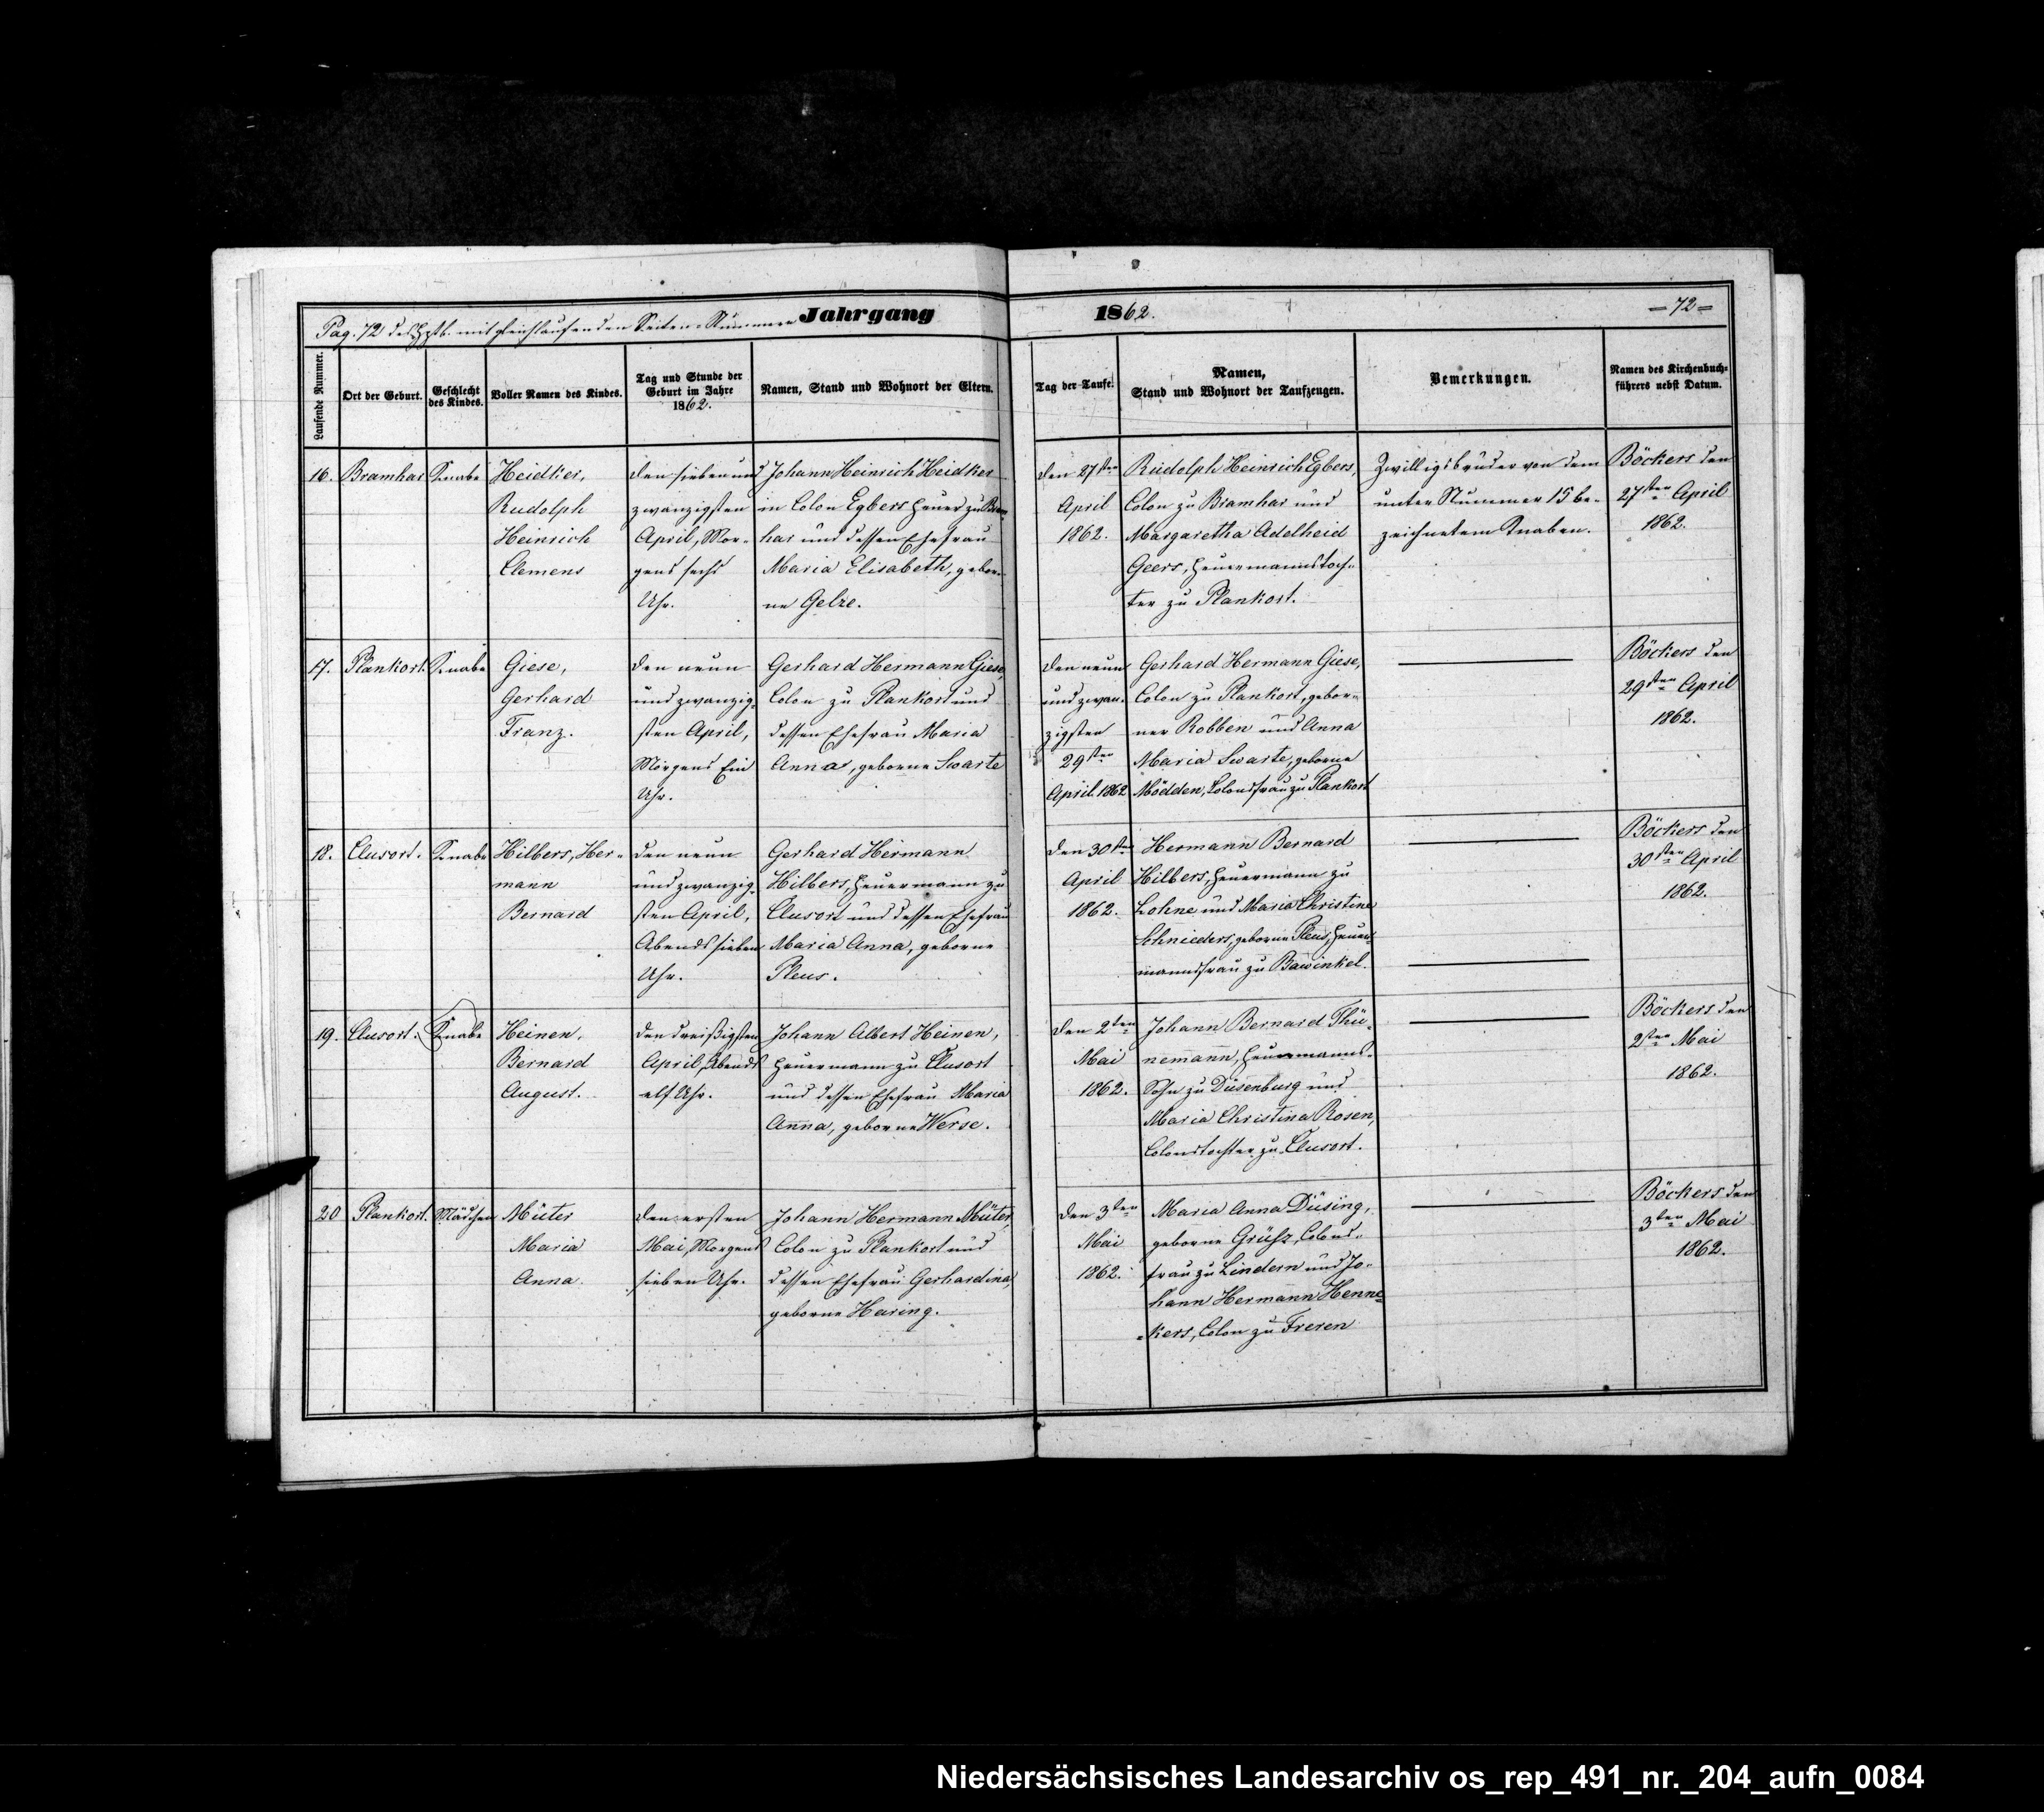 Pag. 72 des Hptb. mit gleichlaufenden Seiten-Nummern
Jahrgang 1862.
=72=
Laufende Nummer.
Ort der Geburt.
Geschlecht des Kindes.
Voller Namen des Kindes.
Tag und Stunde der
Geburt im Jahre
1862.
Namen, Stand und Wohnort der Eltern.
Tag der Taufe.
Namen,
Stand und Wohnort der Taufzeugen.
Bemerkungen.
Namen des Kirchenbuch=
führers nebst Datum.
16.
Bramhar
Knabe
Heidker,
Rudolph
Heinrich
Clemens
den sieben und
zwanzigsten
April, Mor-
gens sechs
Uhr.
Johann Heinrich Heidker
in Colon Egbers Heuer zu Bram-
har und dessen Ehefrau
Maria Elisabeth, gebor-
ne Gelze.
den 27sten
April
1862.
Rudolph Heinrich Egbers,
Colon zu Bramhar und
Margaretha Adelheid
Geers, Heuermannstoch-
ter zu Plankort.
Zwilligsbruder von dem
unter Nummer 15 be-
zeichnetem Knaben.
Böckers den
27sten April
1862.
17.
Plankort.
Knabe
Giese,
Gerhard
Franz.
den neun
und zwanzig-
sten April,
Morgens Ein
Uhr.
Gerhard Hermann Giese,
Colon zu Plankort und
dessen Ehefrau Maria
Anna, geborne Swarte
den neun
und zwan-
zigsten
29sten
April 1862
Gerhard Hermann Giese,
Colon zu Plankort, gebor-
ner Robben und Anna
Maria Swarte, geborne
Mödden, Colonsfrau zu Plankort
Böckers den
29sten April
1862.
18.
Clusort.
Knabe
Hilbers, Her-
mann
Bernard
den neun
und zwanzig-
sten April,
Abends sieben
Uhr.
Gerhard Hermann
Hilbers, Heuermann zu
Clusort und dessen Ehefrau
Maria Anna, geborne
Pleus.
den 30sten
April
1862.
Hermann Bernard
Hilbers, Heuermann zu
Lohne und Maria Christine
Schnieders, geborne Pleus, Heuer-
mannsfrau zu Bawinkel.
Böckers den
30sten April
1862.
19.
Clusort.
Knabe
Heinen,
Bernard
August.
den dreißigsten
April, Abends
elf Uhr.
Johann Albert Heinen,
Heuermann zu Clusort
und dessen Ehefrau Maria
Anna, geborne Werse.
den 2ten
Mai
1862.
Johann Bernard Thü-
nemann, Heuermanns-
Sohn zu Düsenburg und
Maria Christina Rosen,
Colonstochter zu Clusort.
Böckers den
2ten Mai
1862.
20
Plankort.
Mädchen
Müter
Maria
Anna
den ersten
Mai, Morgens
sieben Uhr.
Johann Hermann Müter,
Colon zu Plankort und
dessen Ehefrau Gerhardina,
geborne Haring.
den 3ten
Mai
1862.
Maria Anna Düsing,
geborne Colons-
frau zu Lindern und Jo-
hann Hermann Henne-
kers, Colon zu Freren
Böckers den
3ten Mai
1862.
Niedersächsisches Landesarchiv os_rep_491_nr._204_aufn_0084